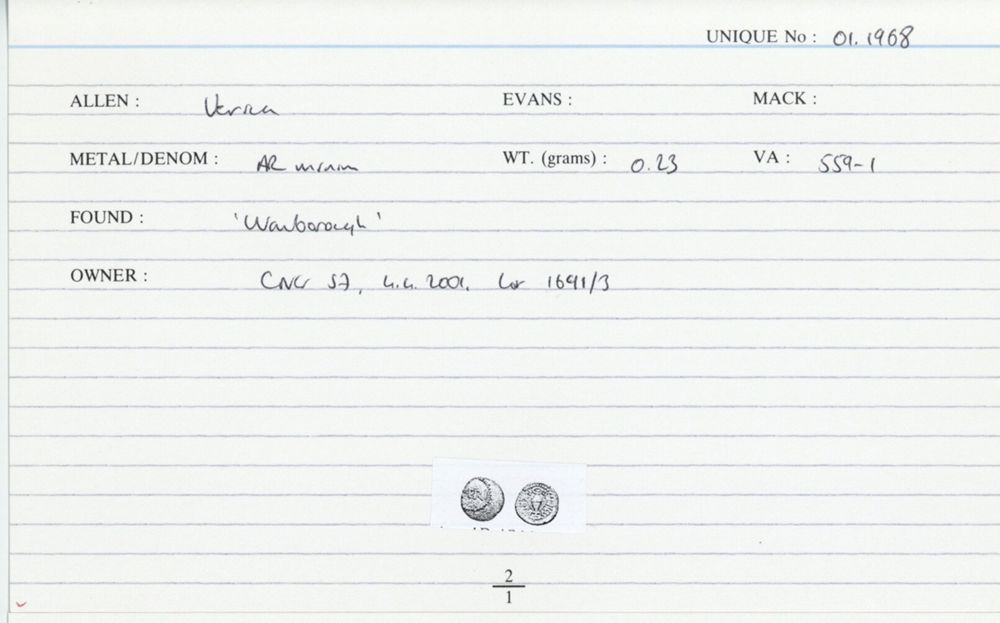 UNIQUE No : 01.1968
ALLEN : Verica EVANS : MACK :
METAL/DENOM : AR minim WT. (grams) : 0.23 VA : 559-1
FOUND : 'Warborough'
OWNER : CNG 57, 4.4.2001, Lot 1691/3
2
1